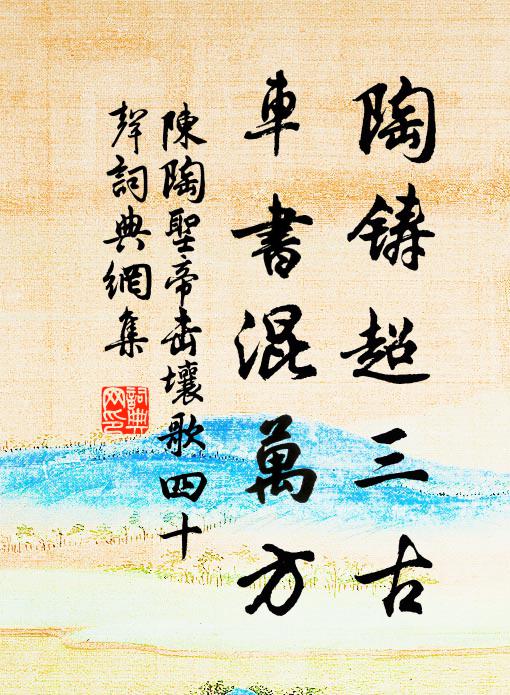 陶鑄超三古
車書混萬方
陳陶聖帝擊壤歌四十
聲詞典網集
詞典網印